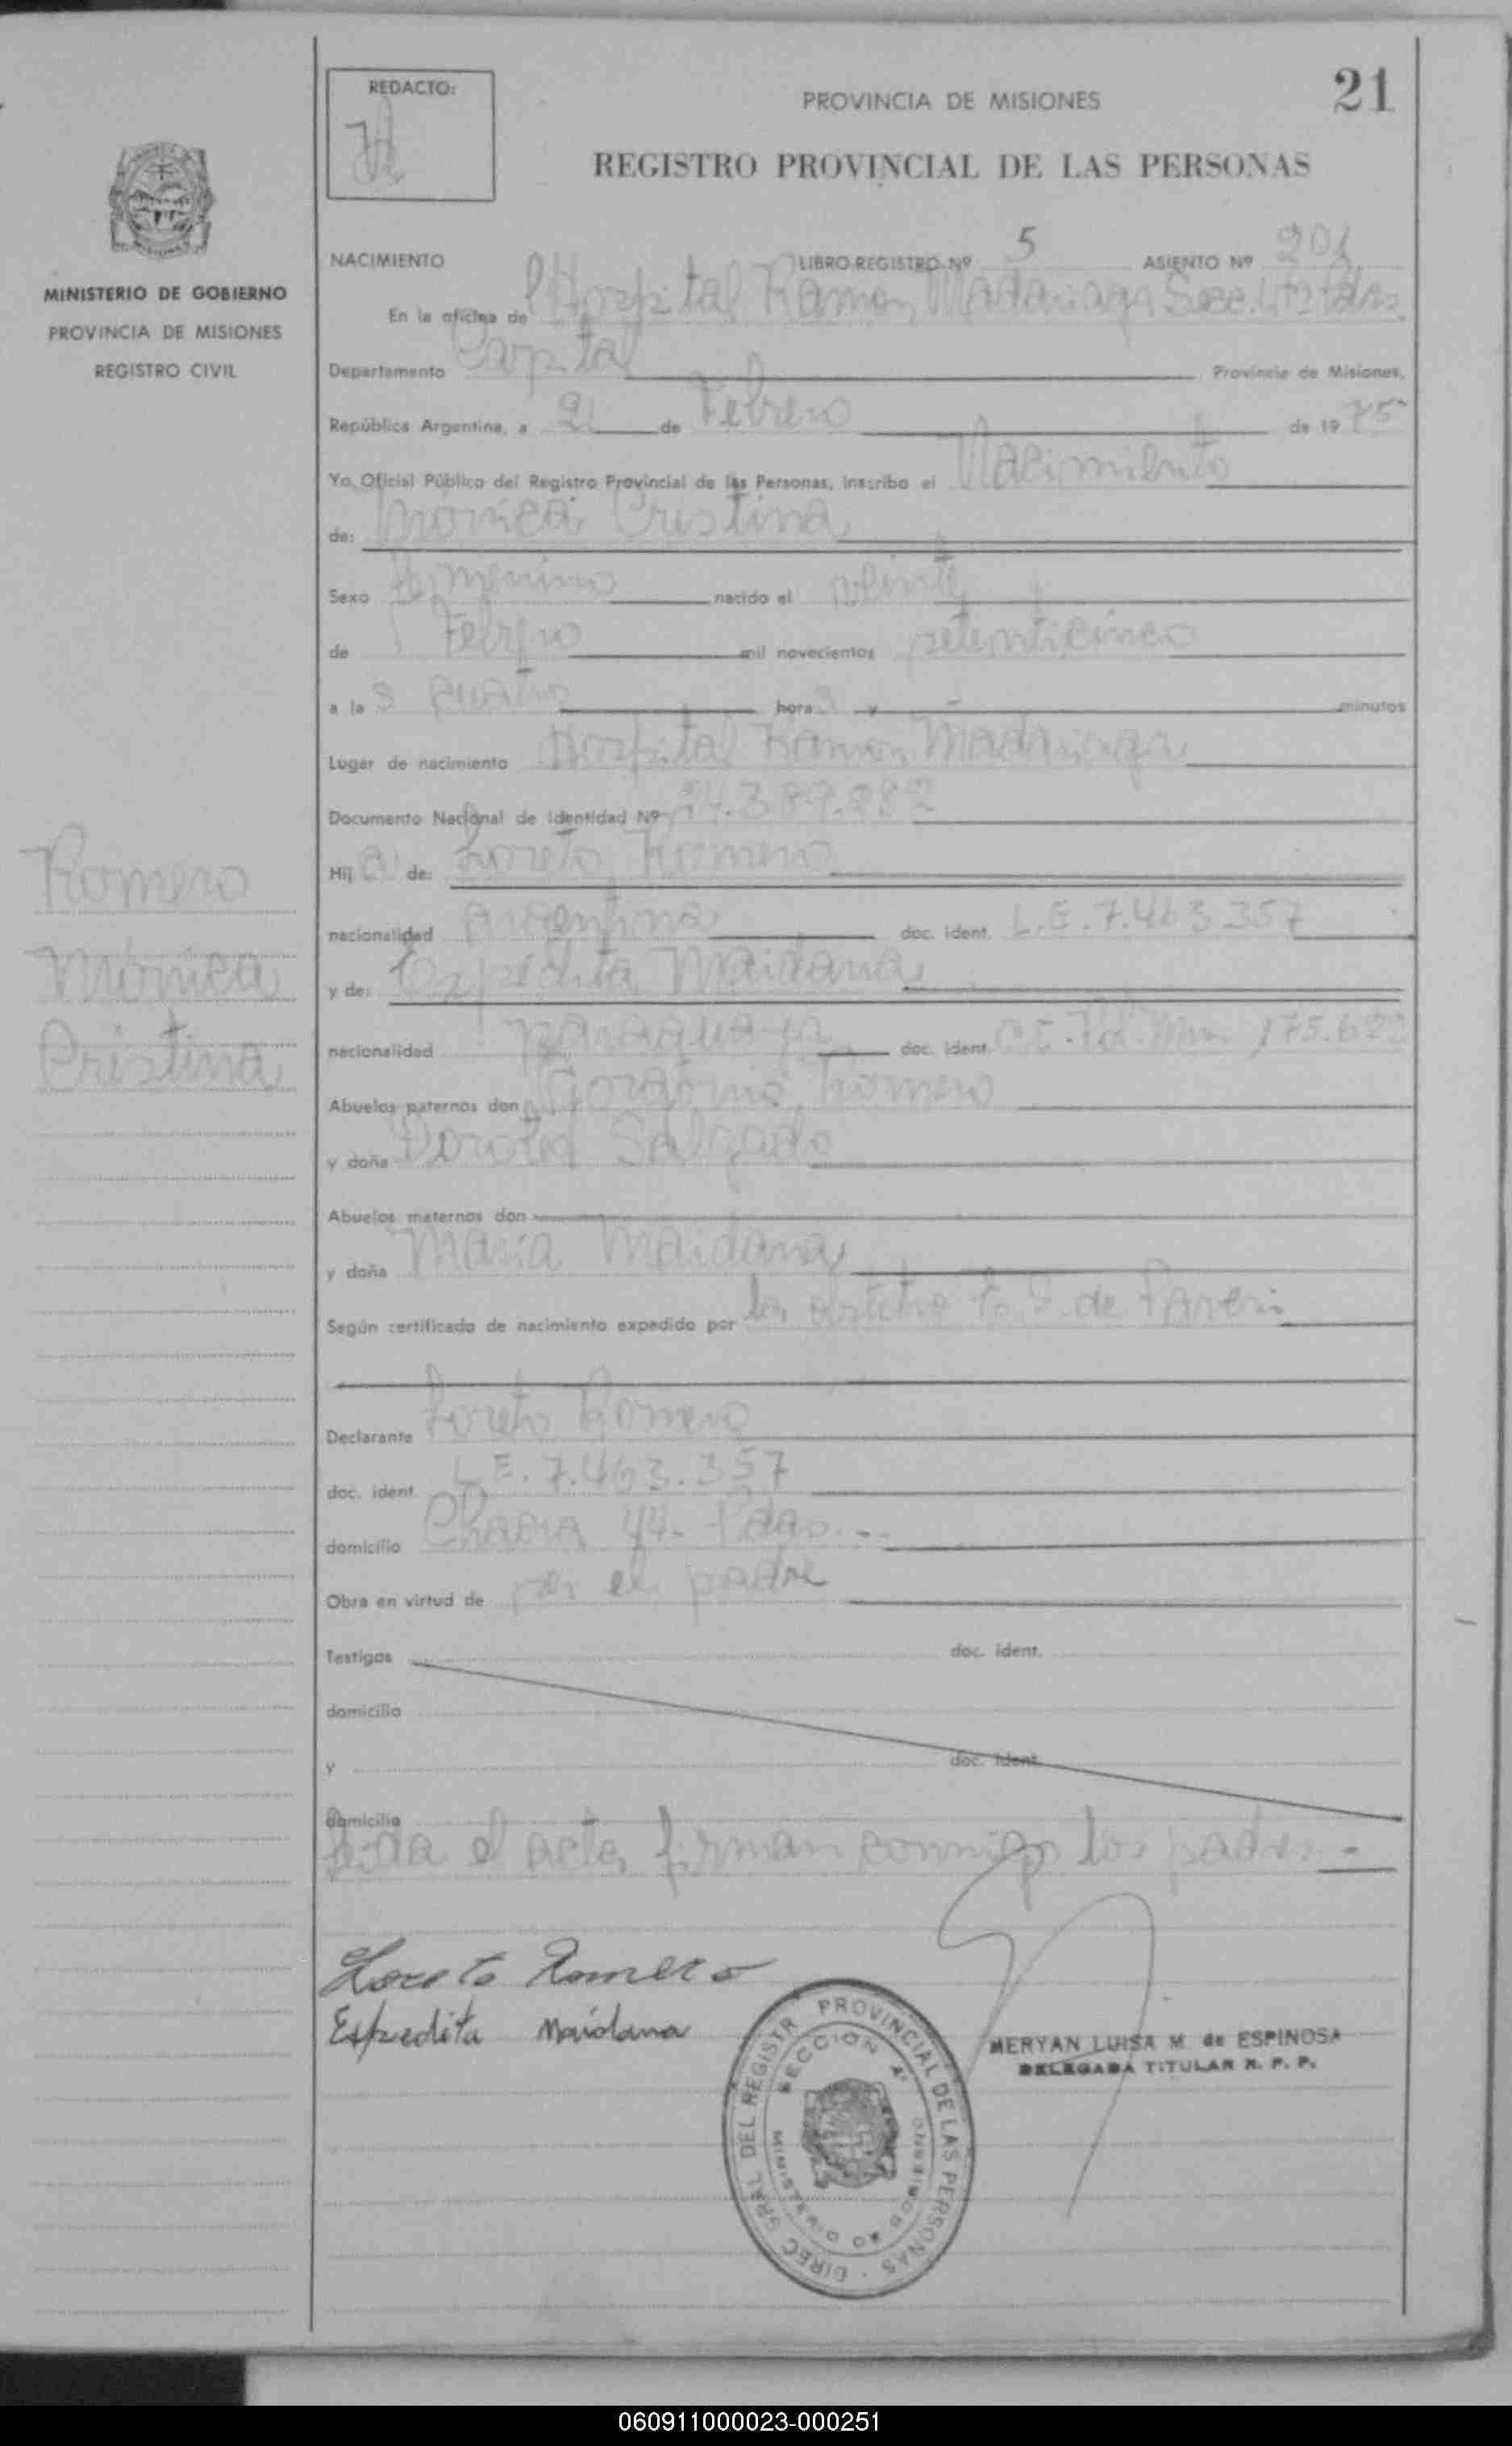 21
REDACTO:
PROVINCIA DE MISIONES
REGISTRO PROVINCIAL DE LAS PERSONAS
MINISTERIO DE GOBIERNO
PROVINCIA DE MISIONES
REGISTRO CIVIL
NACIMIENTO LIBRO REGISTRO Nº 5 ASIENTO Nº 201
En la oficina de Hospital Ramon Madariaga Secc. 4ta Pdas
Departamento Capital Provincia de Misiones.
República Argentina, a 21 de Febrero de 1975
Yo, Oficial Público del Registro Provincial de las Personas, inscribo el Nacimiento
de: Mónica Cristina
Sexo femenino nacido el veinte
de Febrero mil novecientos setenticinco
a las cuatro horas y minutos
Lugar de nacimiento Hospital Ramon Madariaga
Documento Nacional de Identidad Nº 24.389.882
Hija de: Loreto Romero
nacionalidad argentina doc. ident. L.E. 7.463.357
y de: Expedita Maidana
nacionalidad paraguaya doc. ident. 175.622
Abuelos paternos don Romero
y doña Dorotea Salgado
Abuelos maternos don
y doña María Maidana
Según certificado de nacimiento expedido por la de
Declarante Loreto Romero
doc. ident. L.E. 7.463.357
domicilio Chacra 44- Pdas.--
Obra en virtud de ser el padre
Testigos doc. ident.
domicilio
y doc. ident.
domicilio
Leida el acta, firman conmigo los padres.-
Romero
Mónica
Cristina
Loreto Romero
Expedita Maidana
MERYAN LUISA M. de ESPINOSA
DELEGADA TITULAR R. P. P.
DIREC GRAL DEL REGISTR PROVINCIAL DE LAS PERSONAS
SECCION 4ª
MINISTERIO DE GOBIERNO
060911000023-000251